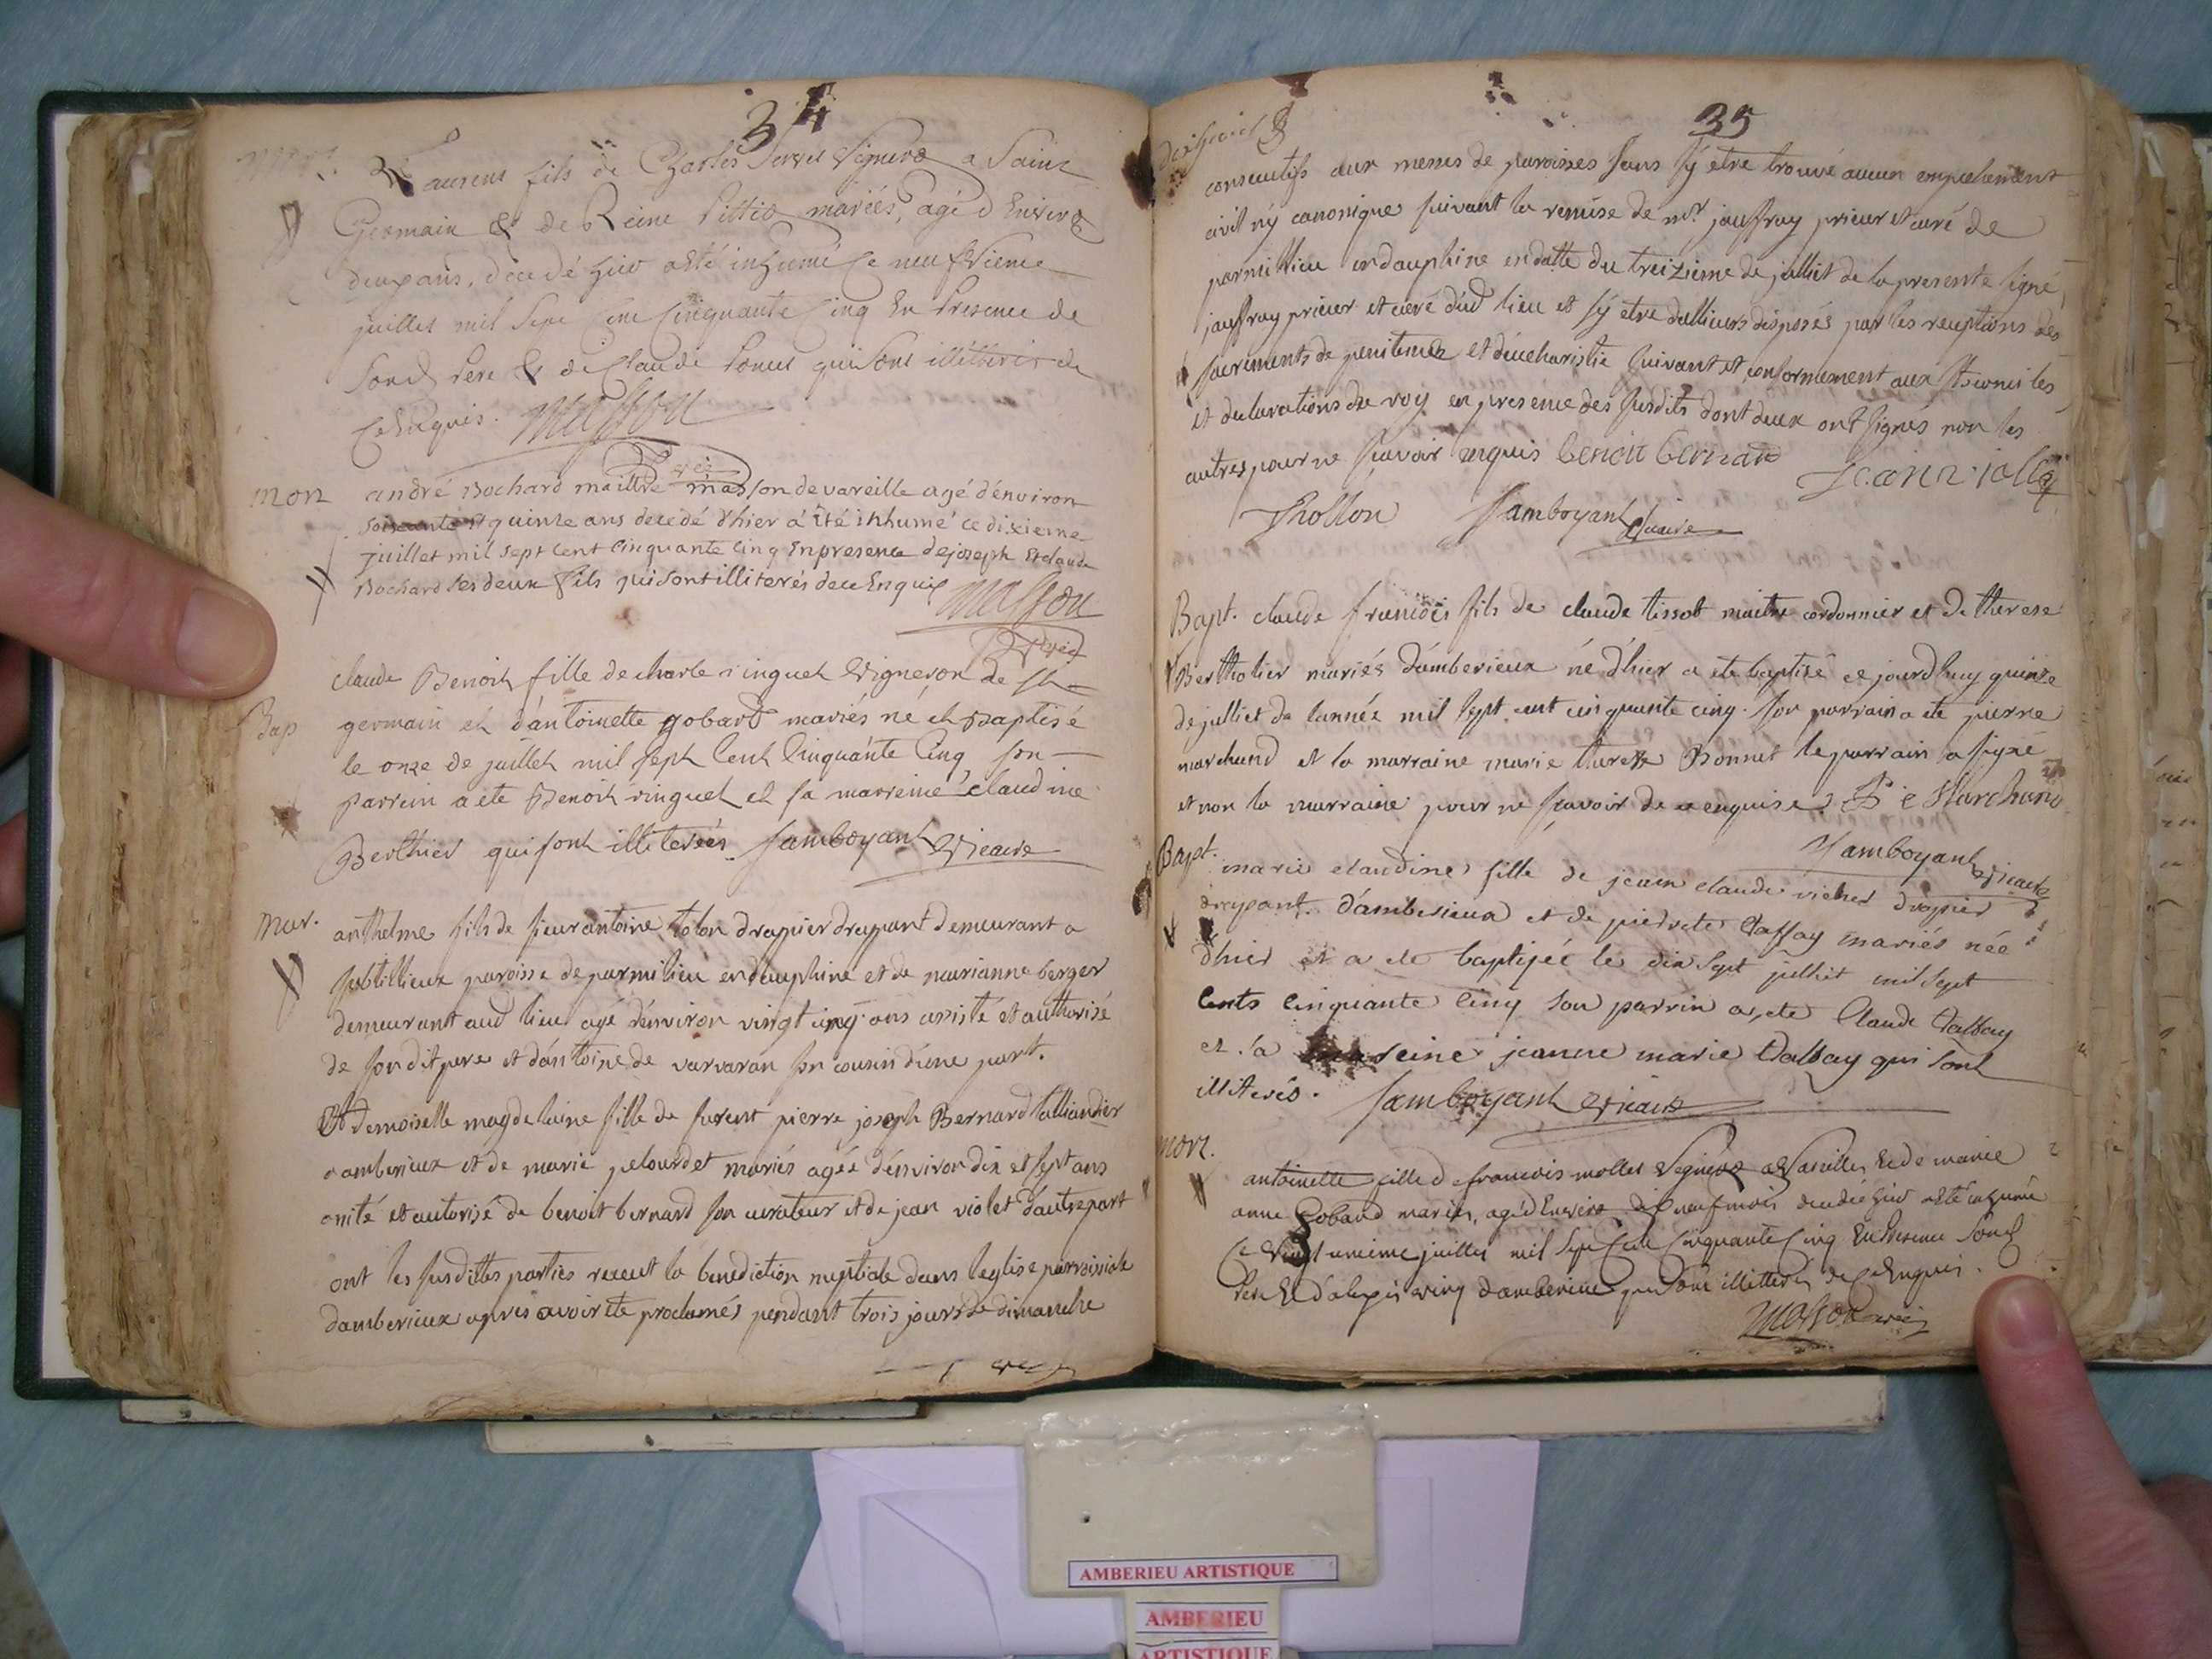 34
mort.
Laurens fils de Charles Servet Vignero a Saint
Germain & de Reine Pittio mariés, agé d Enviro
deux ans, décedé hier a esté inhumé ce neufvieme
juillet mil Sept Cent Cinquante Cinq En Presence de
Sond Pere & de Claude qui sont illitterés de
Ce Enquis. Masson
mort andré Bochard maittre masson de vareille agé dénviron
soixante et quinze ans decedé d'hier a été inhumé ce dixieme
juillet mil sept cent cinquante cinq en presence de joseph et claude
Bochard ses deux fils qui sont illiterés de ce Enquis Masson
claude Benoit fille de charle ringuet vigneron de st
Bap germain et d'antoinette gobard mariés né et baptisé
le onze de juillet mil sept Cent Cinquante Cinq son
parrein a ete Benoit ringuet et sa marreine claudine
Berthier qui sont illiterées Jamboyant vicaire
Mar. anthelme fils de sieur antoine tolon drapier drapant demeurant a
sobtillieux paroisse de parmilieu en dauphine et de marianne berger
demeurant aud lieu agé dénviron vingt cinq ans assisté et authorisé
de son dit pere et d'antoine de varvaran son cousin d'une part.
Et demoiselle magdelaine fille de pierre joseph Bernard talliandier
d'amberieux et de marie pelourdet mariés agée dénviron dix et sept ans
et autorisé de benoit bernard son curateur et de jean violet d'autre part
ont les susdittes parties receut la benediction nuptiale dans leglise parroissiale
damberieux apres avoir ete proclamés pendant trois jours de dimanche
35
consecutifs aux messes de paroisses sans sÿ etre trouvé aucun empechement
civil nÿ canonique suivant la remise de mr. jauffray prieur et curé de
parmillieu en dauphine en datte du treizieme de julliet de la presente signé
jauffray prieur et curé dud lieu et sÿ etre dallieurs disposés par les receptions des
sacrements de penitence et d'eucharistie suivant et conformement aux
et declarations du roy en presence des susdits dont deux ont signés non les
autres pour ne sçavoir enquis benoit bernard
Jean violet
Thollon Jamboyant vicaire
Bapt. claude francois fils de claude tissot maitre cordonnier et de therese
Bertholier mariés d'amberieux né d'hier a ete baptisé ce jourd'huy quinze
de julliet de lannée mil sept cent cinquante cinq. son parrain a ete pierre
marchand et la marraine marie therese Bonnet le parrain a signé
et non la marraine pour ne sçavoir de ce enquise. P e Marchand
Jamboyant vicaire
Bapt. marie claudine fille de jean claude vicher drapier
drapant d'amberieux et de pierrete Dassay mariés née
d'hier et a ete baptisée le dix sept julliet mil sept
Cents Cinquante Cinq son parrin a ete Claude Dalbay
et sa mareine jeanne marie Dalbay qui sont
illiterés. Jamboyant vicaire
mort.
antoinette fille d francois mollet Vigneros a Vareilles & de marie
anne Gobard mariés, agé d'Enviro dix neuf mois decedée hier a esté inhumé
Ce Vingt unieme juillet mil Sept Cent Cinquante Cinq En Presence Sond
Pere & d'alexis d'amberieux qui sont illitterés de Ce Enquis.
Masson
AMBERIEU ARTISTIQUE
AMBERIEU
ARTISTIQUE